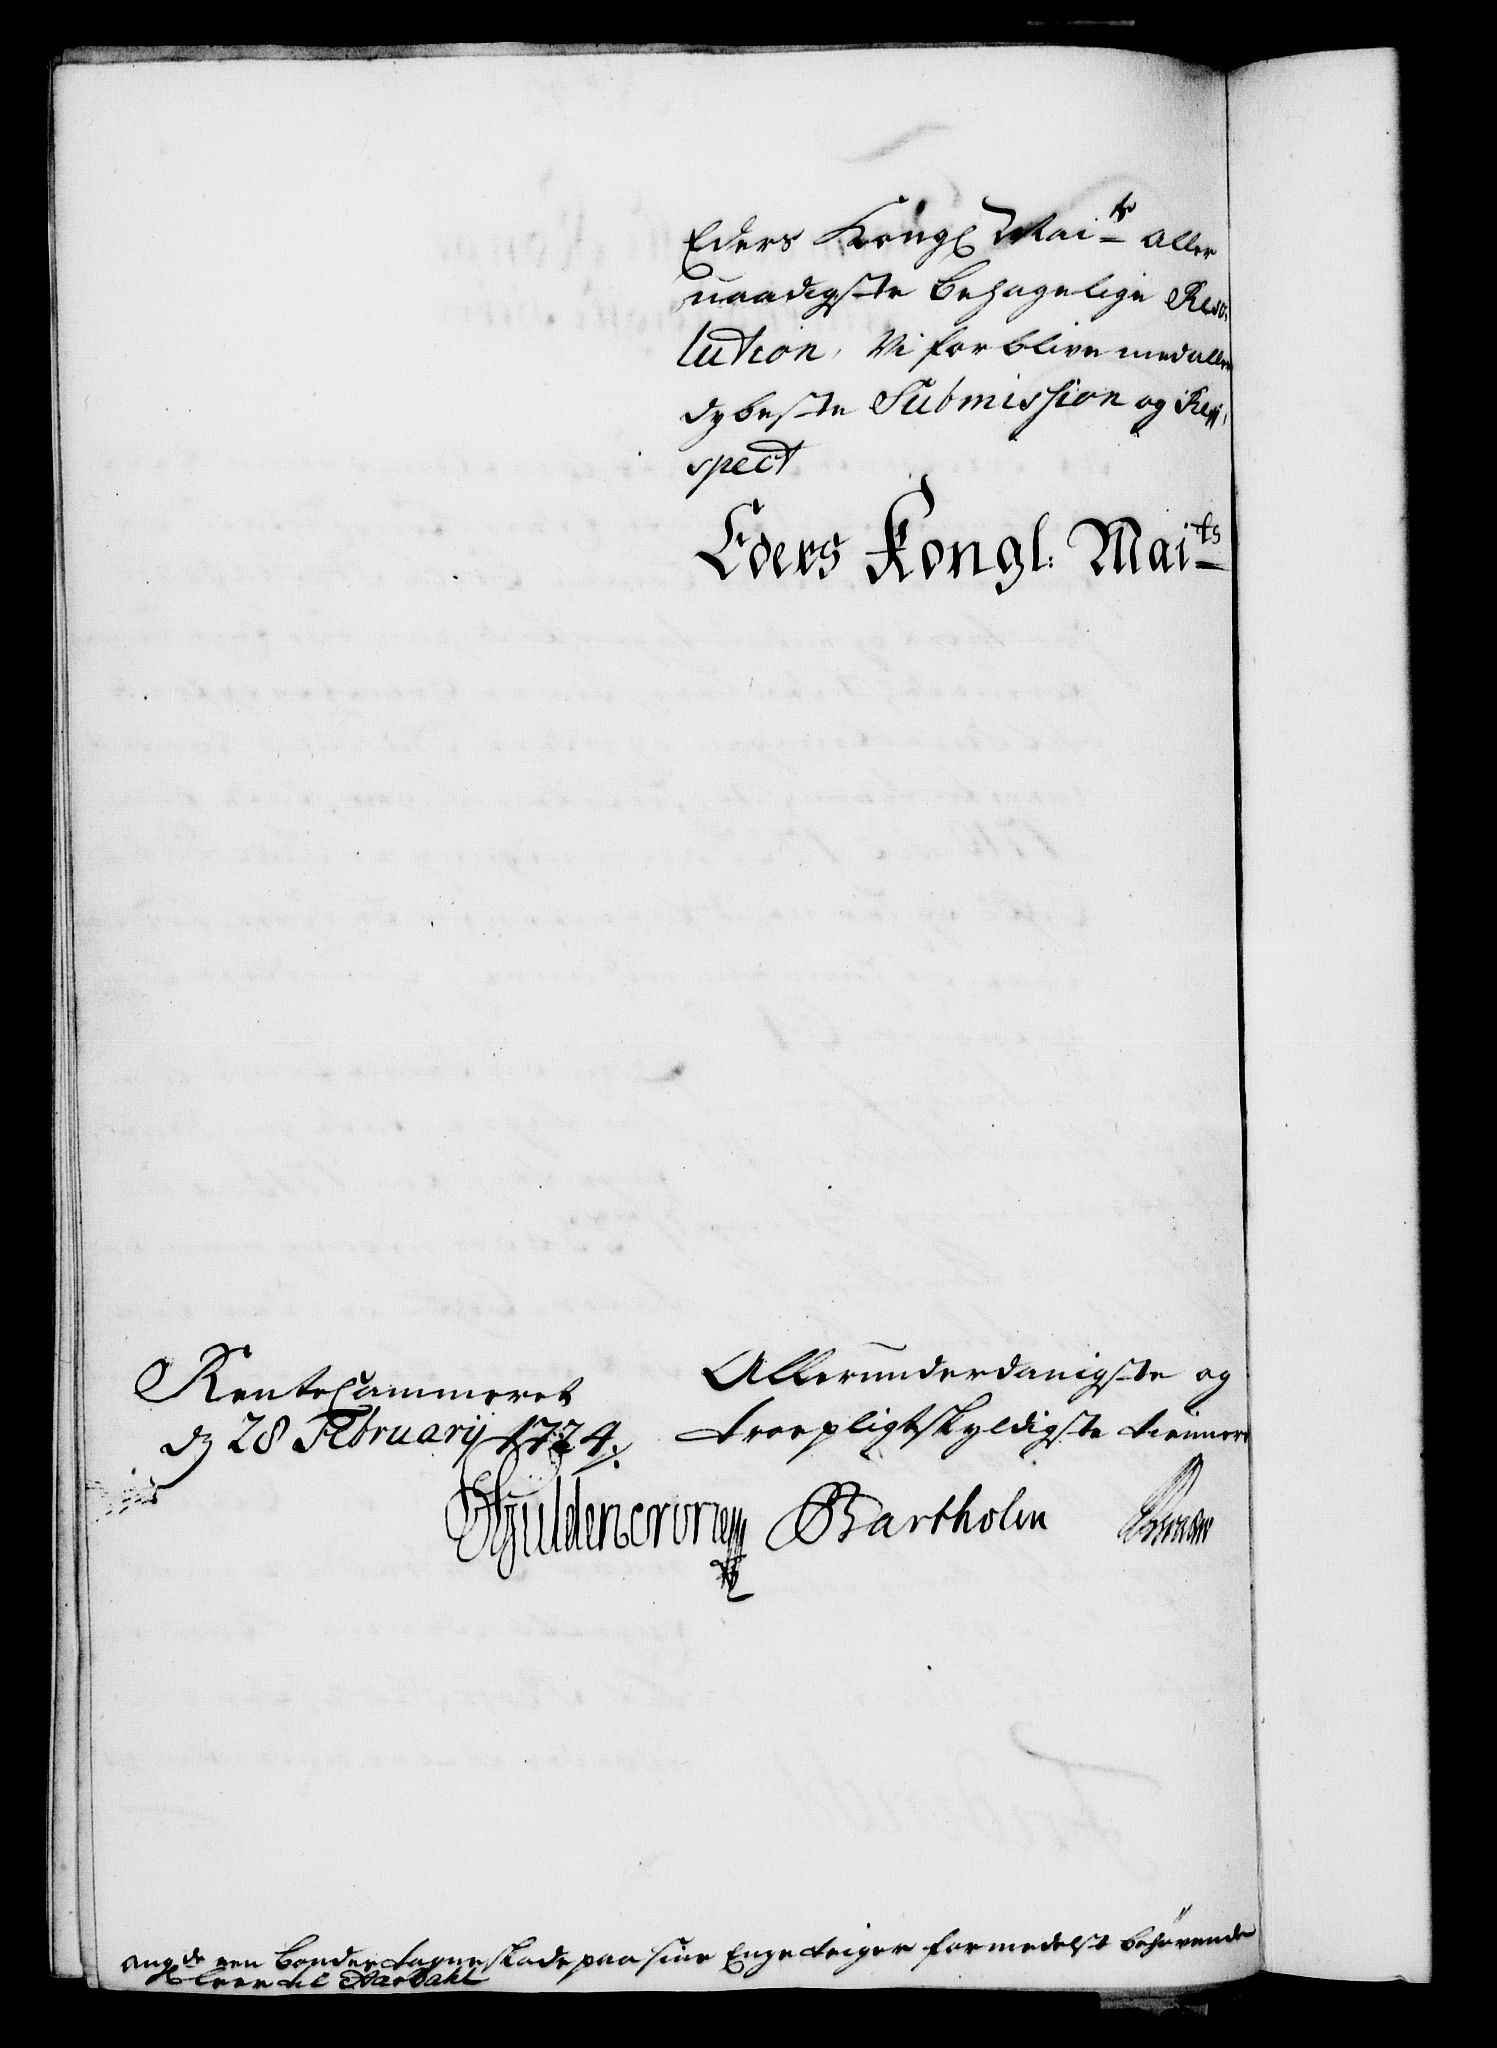 Eders Kongl Mai^ts aller
naadigste behagelige Reso-
lution, Vi forblive med aller
dybeste Submission og Re-
spect
Eders Kongl: Mai^ts
RenteCammeret
d 28 Februarij 1724.
Allerunderdanigste og
troepligtskyldigste tiennere
Güldencrone
Bartholin
ang^de een bondes tagne skade paa sine Enge teiger formedelst behövende
leer til